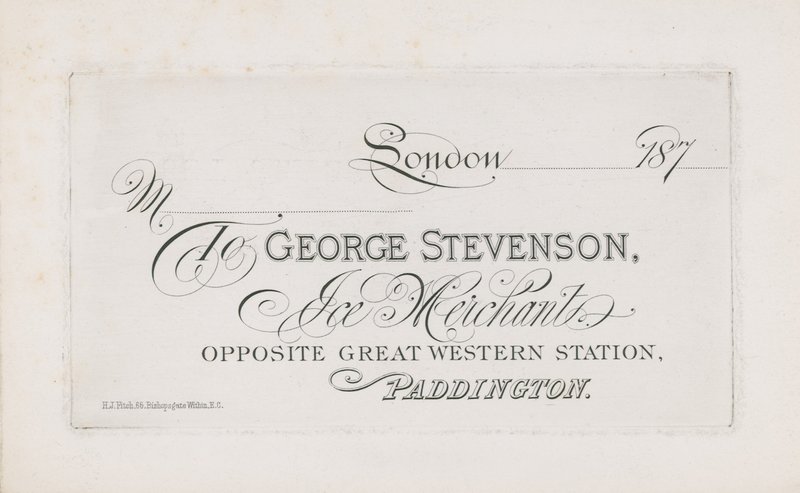 London 187
M
To GEORGE STEVENSON,
Ice Merchant.
OPPOSITE GREAT WESTERN STATION,
PADDINGTON.
H.J. Fitch, 65, Bishopsgate Within, E.C.